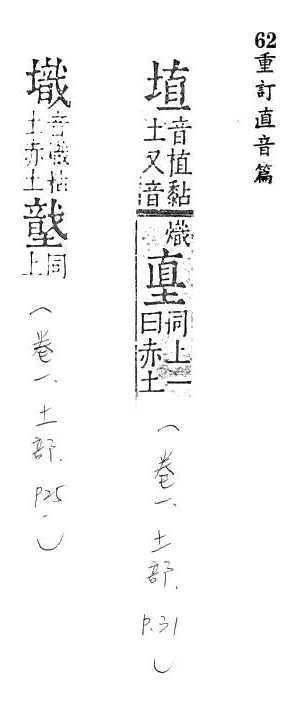 62重訂直音篇
埴音植黏土又音熾
同上一曰赤土
(卷一.土部.P.31)
音幟粘土赤土
同上
(卷一.土部.P25.)